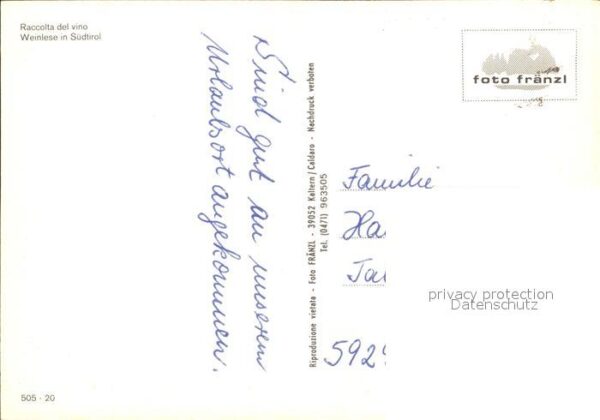 Raccolta del vino
Weinlese in Südtirol
Sind gut an unserem
Urlaubsort angekommen.
Riproduzione vietata - Foto FRÄNZL - 39052 Kaltern/Caldaro - Nachdruck verboten
Tel. (0471) 963505
foto fränzl
Familie
Ha
Ta
592
privacy protection
Datenschutz
505 - 20